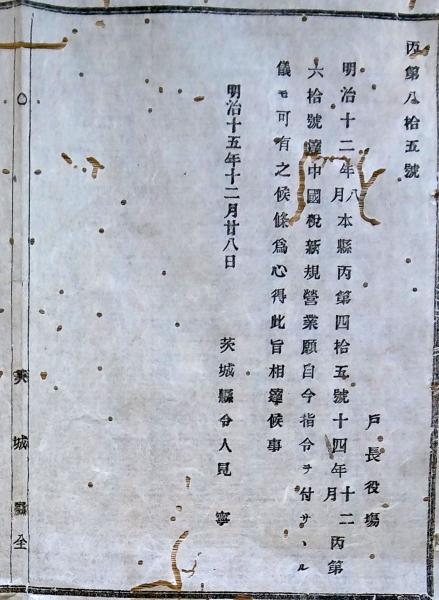 丙第八拾五號
戸長役塲
明治十二年八月本縣丙第四拾五號十四年十二月丙第
六拾號達中國稅新規營業願自今指令ヲ付サヽル
儀モ可有之候條爲心得此旨相達候事
明治十五年十二月廿八日
茨城縣令人見寧
茨城縣全